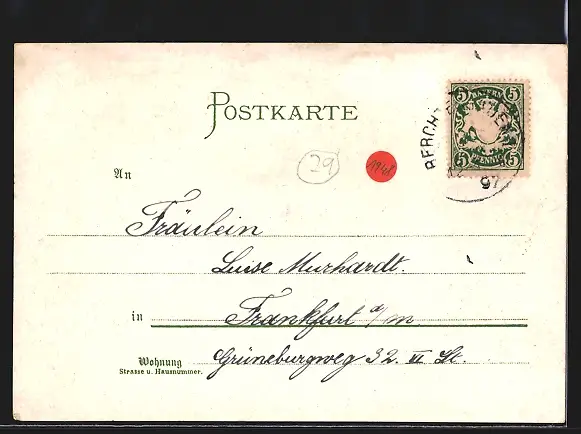 POSTKARTE
5 BAYERN 5
5 PFENNIG 5
BERCH
97
29
An
Fräulein
Luise Murhardt.
in Frankfurt a/m
Wohnung
Strasse u. Hausnummer.
Grüneburgweg 32. II St.